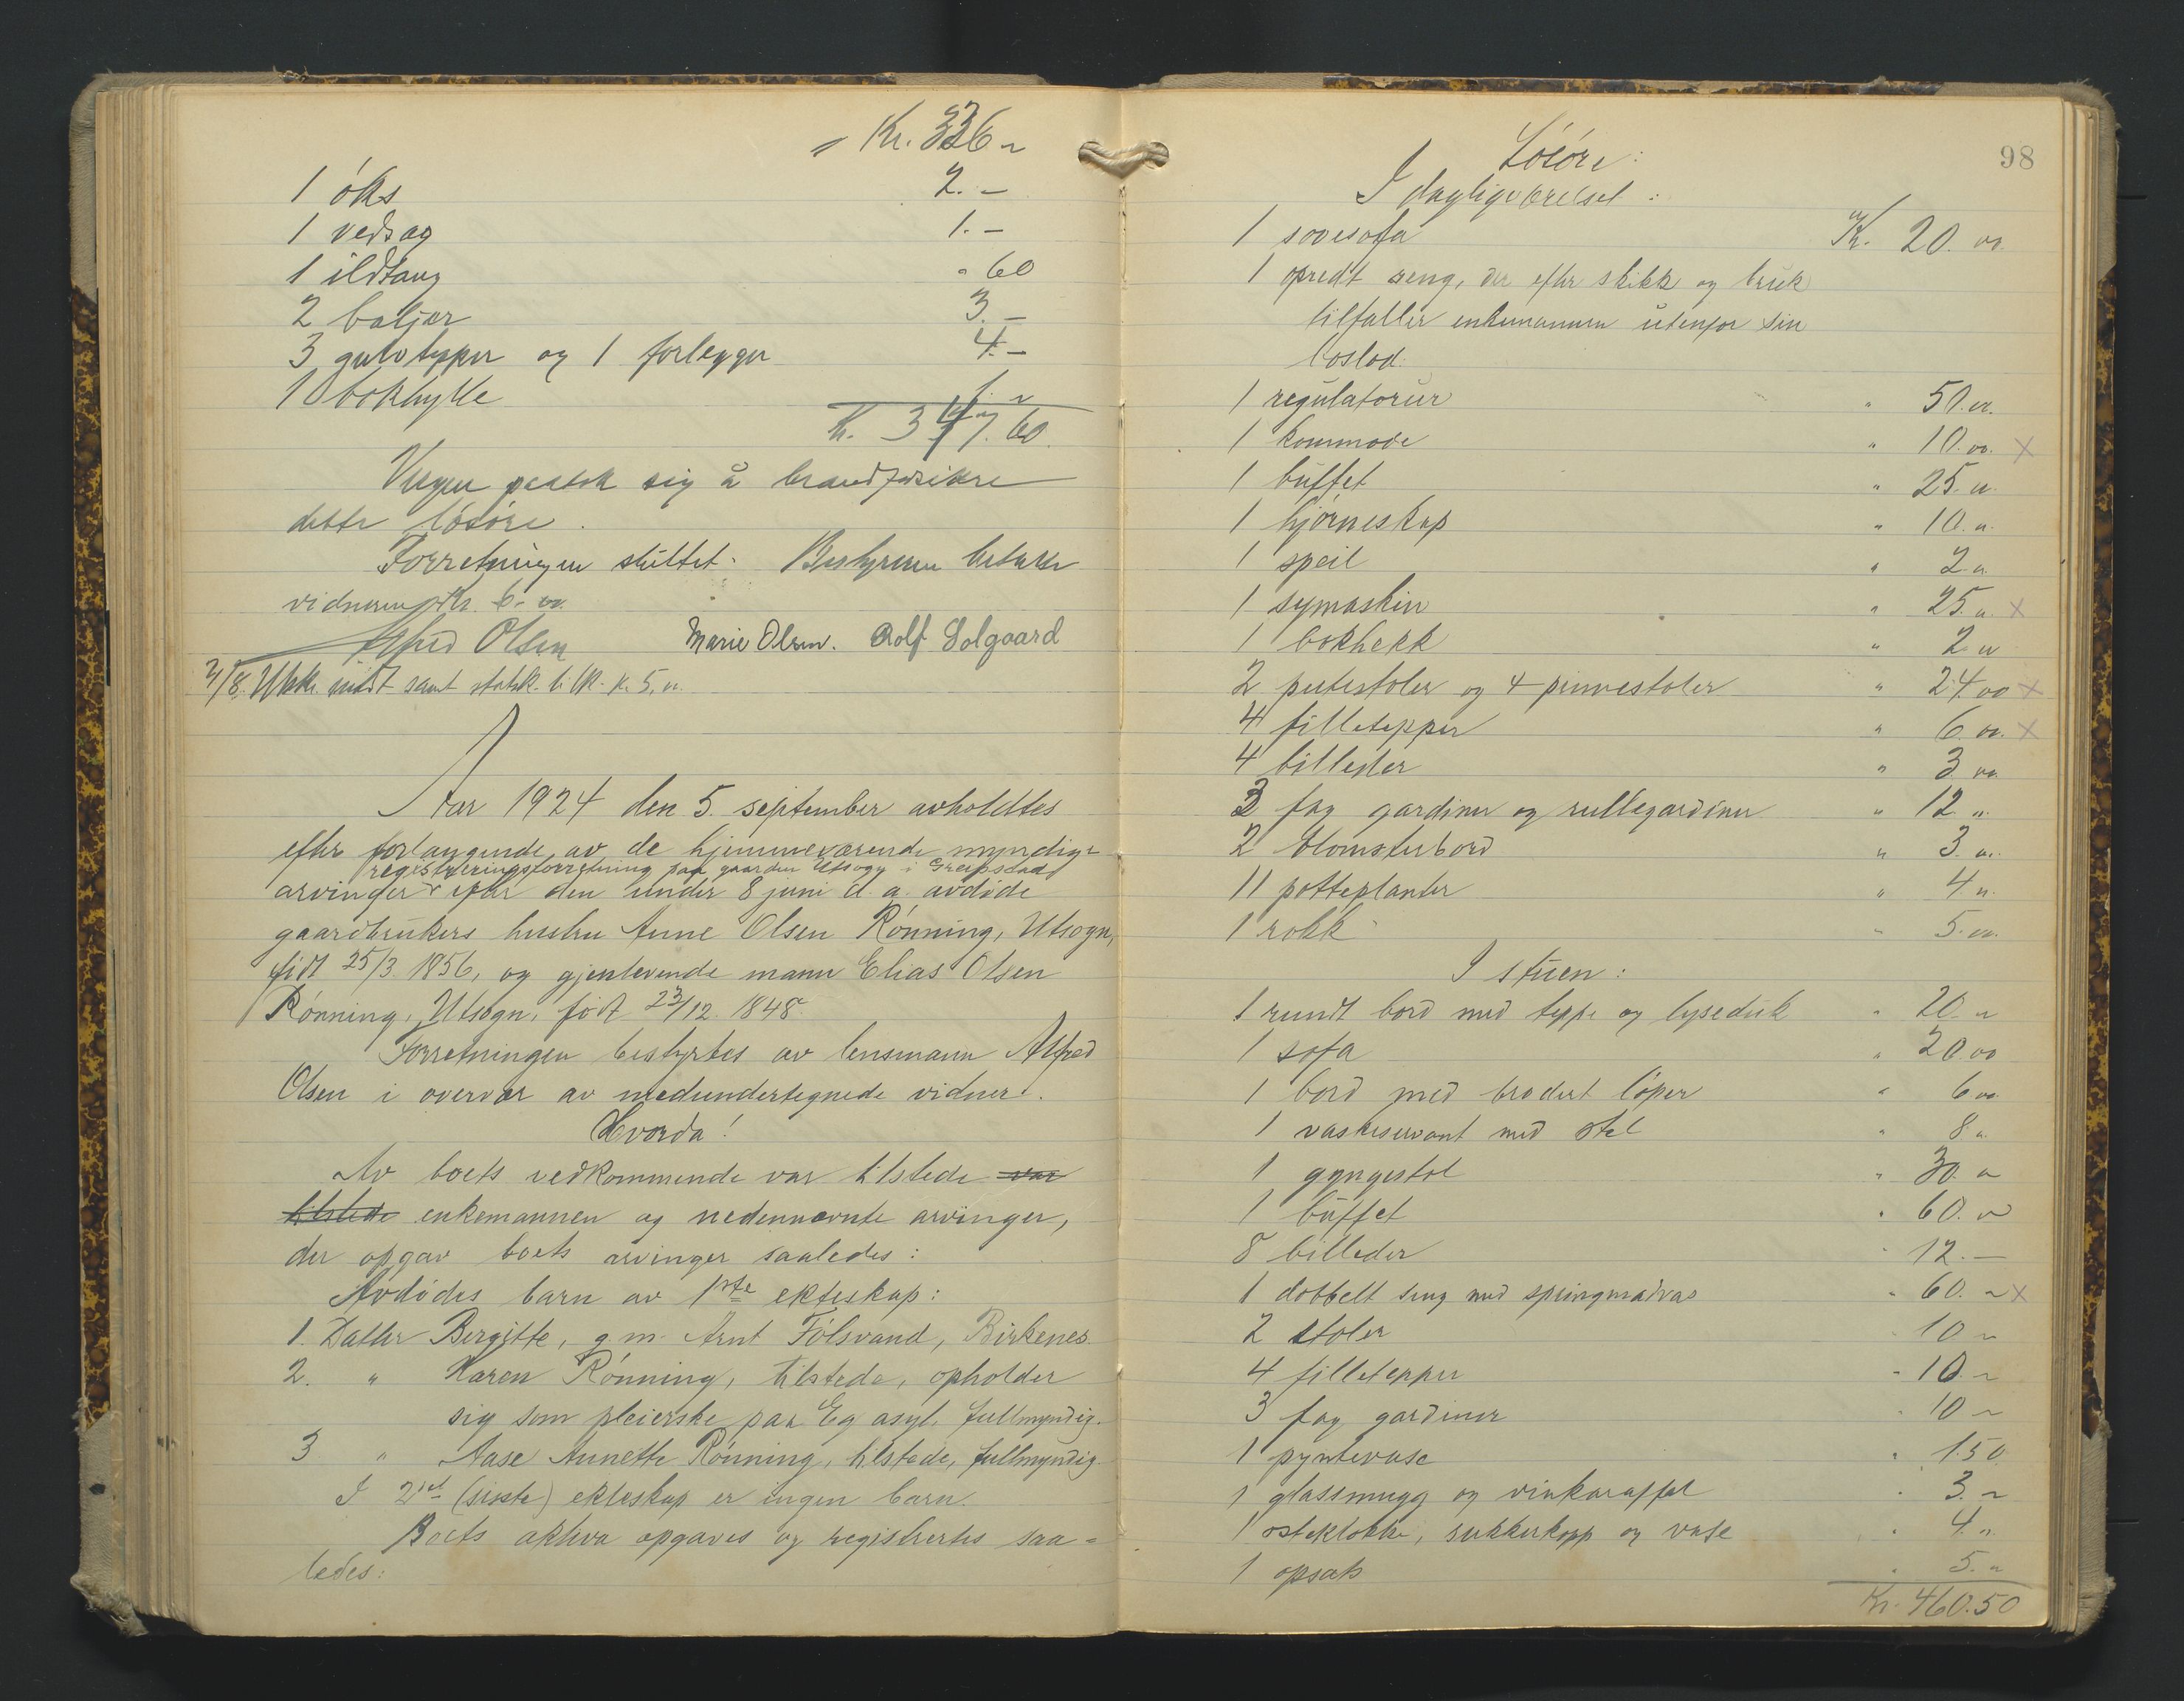 Kr. 336 -
1 öks 2. -
1 vedsag 1. -
1 ildtang " 60
2 baljer 3. -
3 gulvtepper og 1 forlegger 4. -
1 bokhylle 1. -
Kr. 347.60
paatok sig å brandforsikre
dette lösöre.
Forretningen sluttet. Bestyreren betaler
vidnerne Kr. 6. oo
Alfred Olsen Marie Olsen. Rolf Solgaard
Utsk. samt kr. 5. oo
Aar 1924 den 5. september avholdtes
efter forlangende av de hjemmeværende myndige
registreringsforretning paa gaarden Utsogn i Greipstad
arvinger efter den under 8 juni d. a. avdöde
gaardbrukers hustru Anne Olsen Rönning, Utsogn,
födt 25/3 1856, og gjenlevende mann Elias Olsen
Rönning, Utsogn, födt 23/12 1848.
Forretningen bestyrtes av lensmann Alfred
Olsen i overvær av medundertegnede vidner.
Hvorda!
Av boets vedkommende var tilstede var
tilstede enkemannen og nedennævnte arvinger,
der opgav boets arvinger saaledes:
Avdödes barn av 1ste ekteskap:
1. Datter Bergitte, g.m. Arnt Fölsvand, Birkenes.
2. " Karen Rönning, tilstede, opholder
sig som pleierske paa Eg asyl, fullmyndig.
3 " Aase Annette Rönning, tilstede, fullmyndig
I 2det (siste) ekteskap er ingen barn.
Boets aktiva opgaves og registrertes saa=
ledes:
98
Lösöre:
I dagligværelset:
1 sovesofa Kr. 20. oo
1 opredt seng, der efter skikk og bruk
tilfaller enkemannen utenfor sin
boslod.
1 regulatorur " 50. oo.
1 kommode " 10. oo. x
1 buffet " 25. "
1 hjörneskap " 10. "
1 speil " 2. "
1 symaskin " 25. " x
1 bokhekk " 2 "
2 putestoler og 4 pinnestoler " 24. oo x
4 filletepper " 6. oo. x
4 billeder " 3 oo
3 fag gardiner og rullegardiner " 12. "
2 blomsterbord " 3. oo.
11 potteplanter " 4 "
1 rokk " 5. oo.
I stuen:
1 rundt bord med teppe og lyseduk " 20. "
1 sofa " 20. oo
1 bord med brodert löper " 6 oo
1 vaskeservant med stel " 8 "
1 gyngestol " 30. "
1 buffet " 60. "
8 billeder " 12. -
1 dobbelt seng med springmadras " 60. - x
2 stoler " 10 -
4 filletepper " 10. -
3 fag gardiner " 10 -
1 pyntevase " 1.50
1 glassmugg og vinkaraffel " 3. -
1 osteklokke, sukkerkopp og vase " 4. "
1 opsats " 5. "
Kr. 460.50